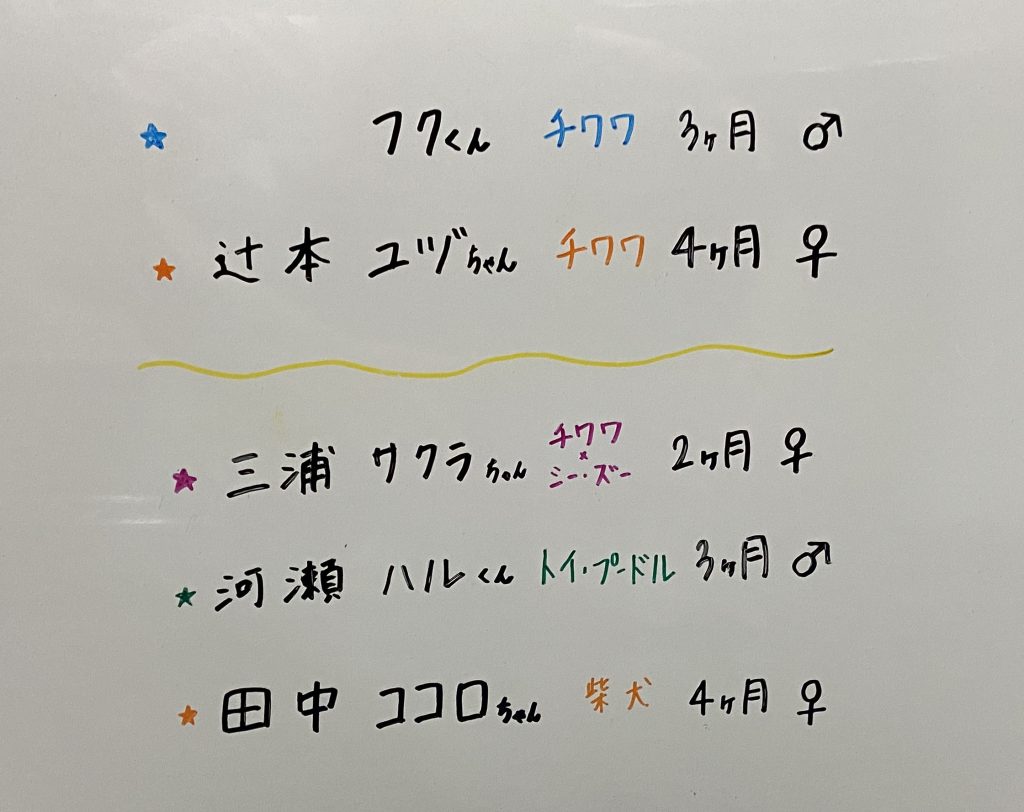 ★ フクくん チワワ 3ヶ月 ♂
★ 辻本 ユヅちゃん チワワ 4ヶ月 ♀
★ 三浦 サクラちゃん チワワ×シー・ズー 2ヶ月 ♀
★ 河瀬 ハルくん トイ・プードル 3ヶ月 ♂
★ 田中 ココロちゃん 柴犬 4ヶ月 ♀